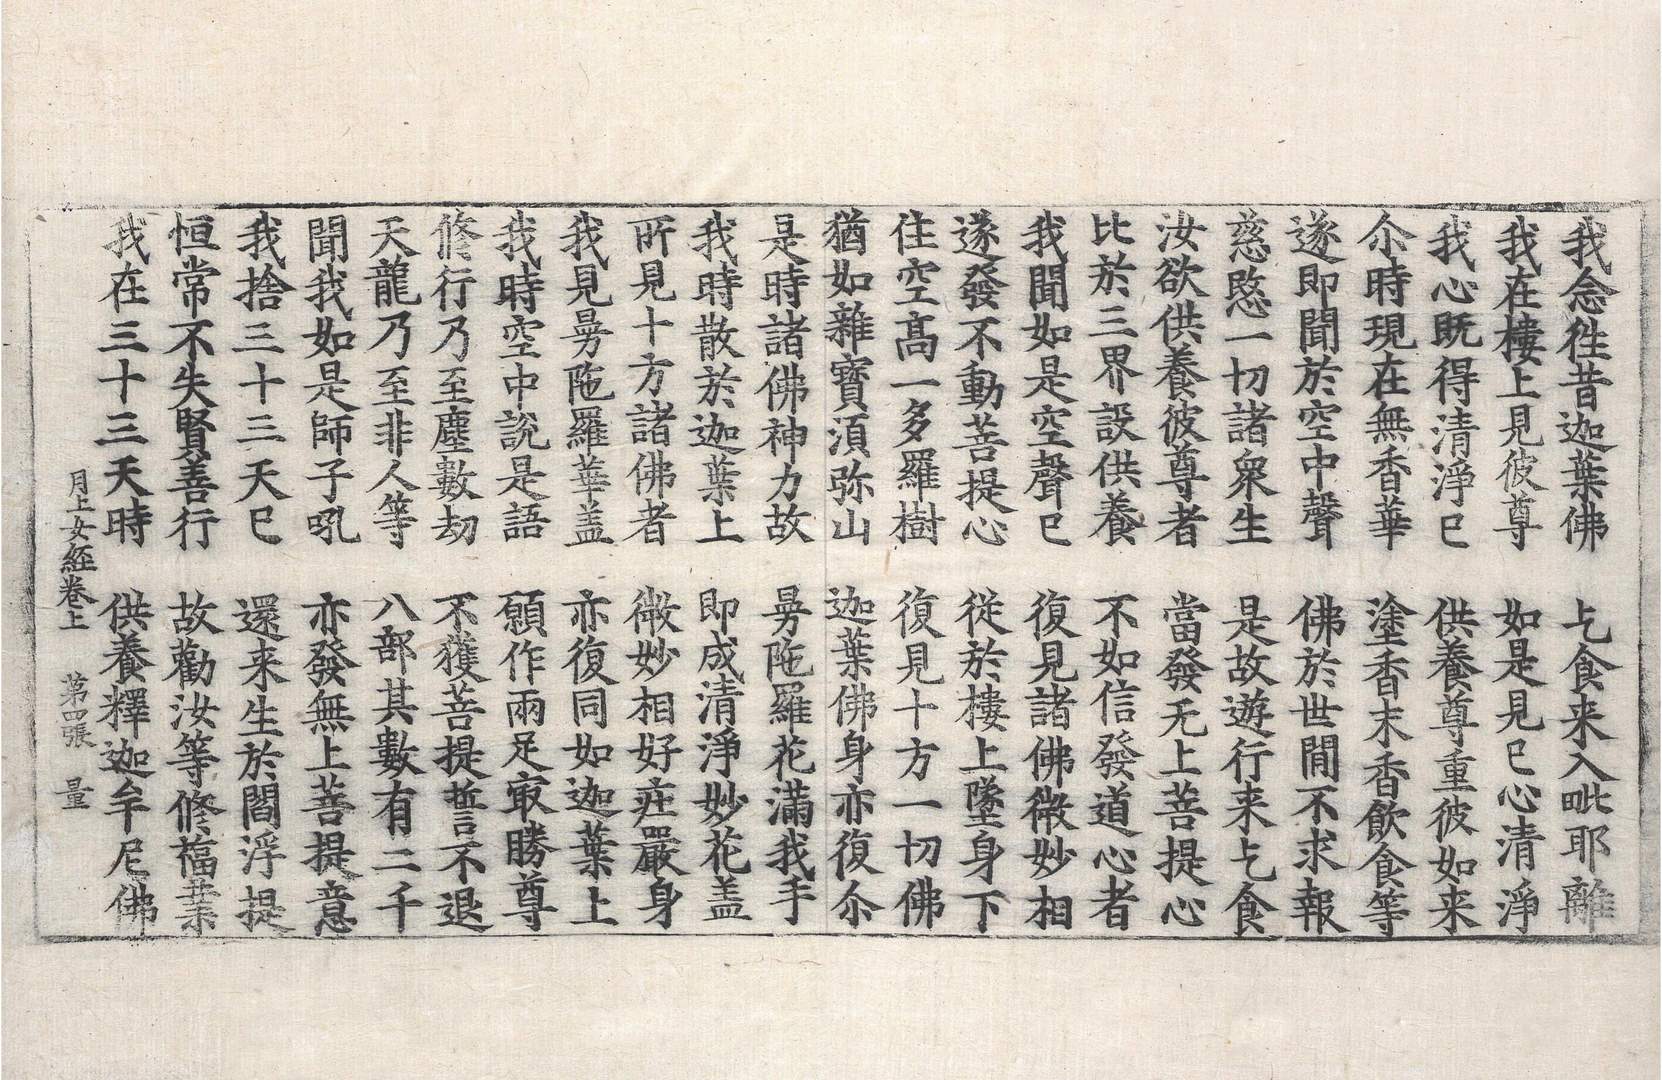 我念徃昔迦葉佛　乞食来入毗耶離
我在樓上見彼尊　如是見已心清淨
我心既得清淨已　供養尊重彼如来
尒時現在無香華　塗香末香飲食等
遂即聞於空中聲　佛於世間不求報
慈愍一切諸衆生　是故遊行来乞食
汝欲供養彼尊者　當發无上菩提心
比於三界設供養　不如信發道心者
我聞如是空聲已　復見諸佛微妙相
遂發不動菩提心　從於樓上墜身下
住空高一多羅樹　復見十方一切佛
猶如雜寶湏弥山　迦葉佛身亦復尒
是時諸佛神力故　曼陁羅花滿我手
我時散於迦葉上　即成清淨妙花盖
所見十方諸佛者　微妙相好莊嚴身
我見曼陁羅華盖　亦復同如迦葉上
我時空中說是語　願作兩足㝡勝尊
修行乃至塵數劫　不獲菩提誓不退
天龍乃至非人等　八部其數有二千
聞我如是師子吼　亦發無上菩提意
我捨三十三天已　還来生於閻浮提
恒常不失賢善行　故勸汝等修福業
我在三十三天時　供養釋迦牟尼佛
月上女経卷上　第四張　量